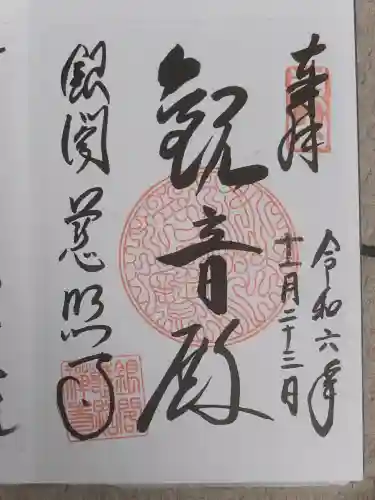 奉拝
令和六年
十一月二十三日
観音殿
銀閣慈照寺